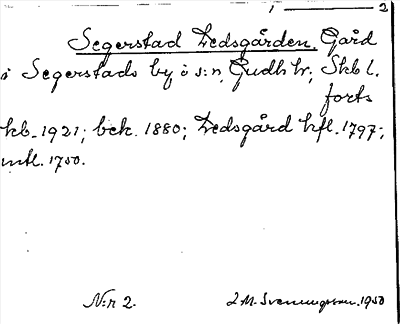 1 ——— 2
Segerstad Ledsgården. Gård
i Segerstads by o s:n, Gudh hr; Skb l.
forts
kb. 1921; bek. 1880; Ledsgård hfl. 1797;
mtl. 1750.
N:r 2. 1950